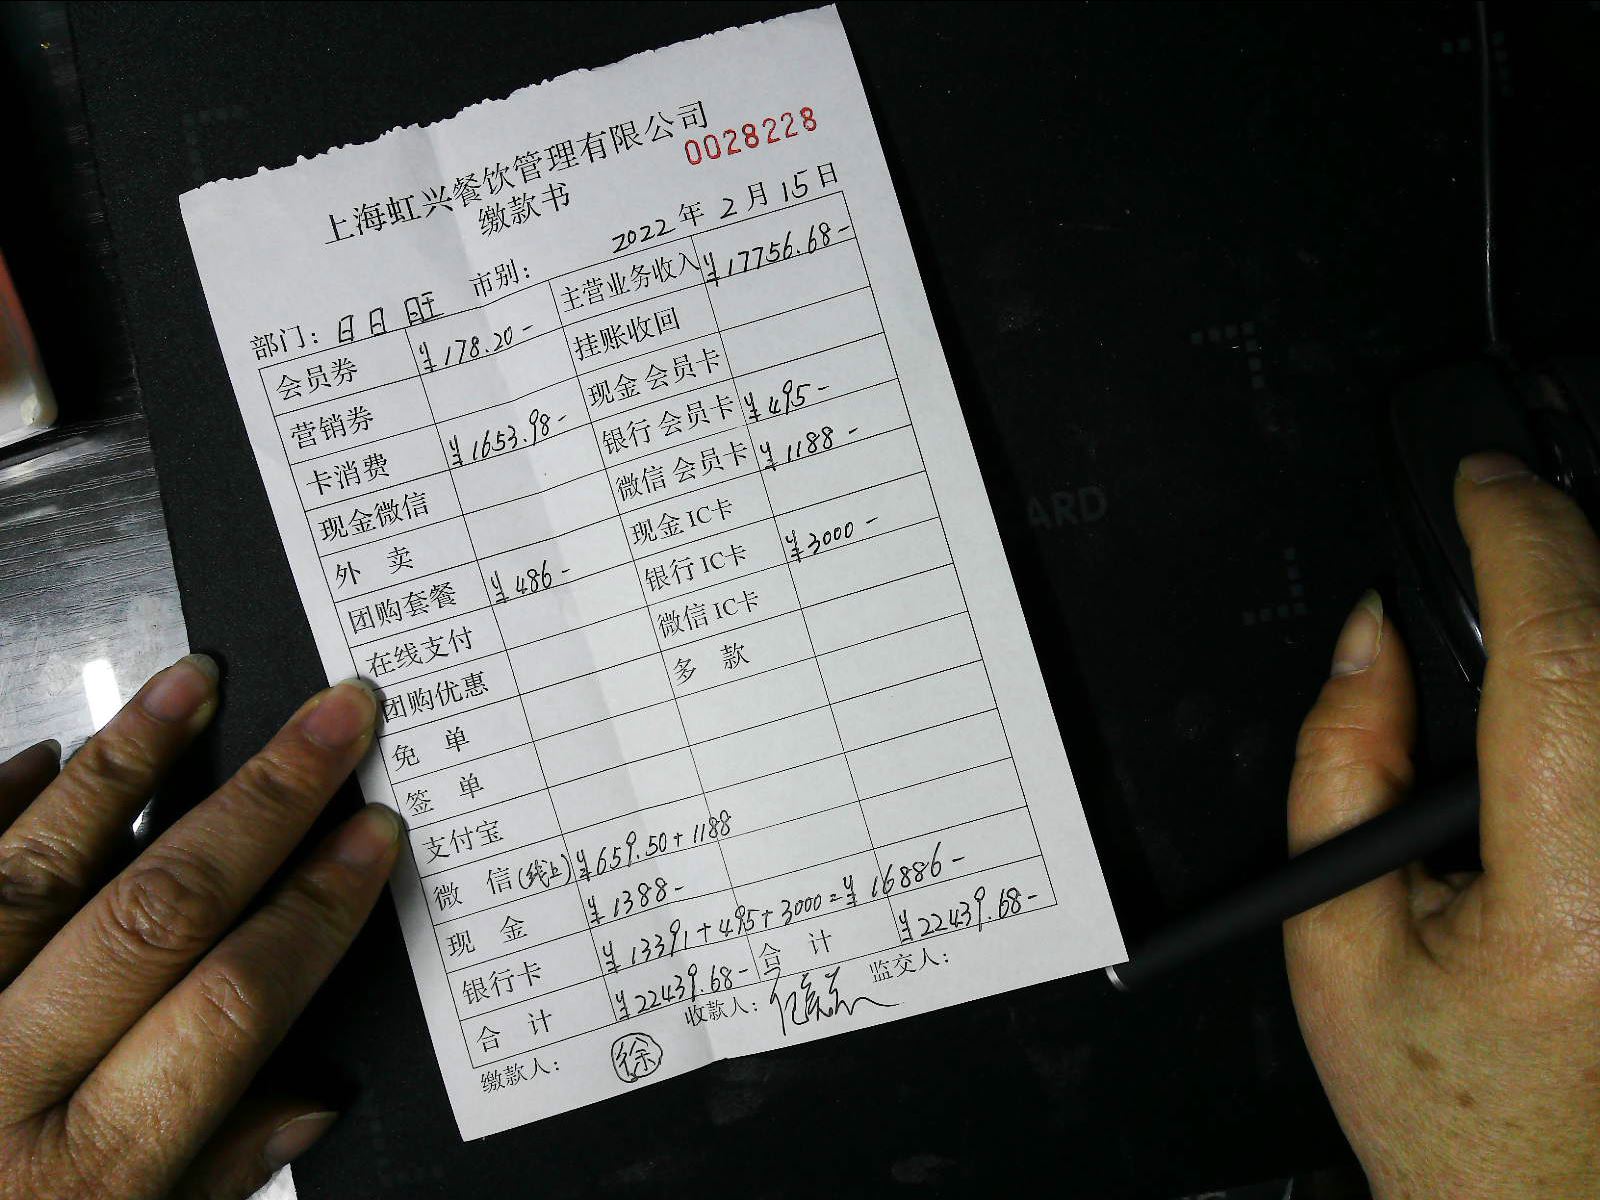 上海虹兴餐饮管理有限公司
缴款书
0028228
2022年2月15日
部门：日日旺 市别：
会员券 ¥178.20- 主营业务收入 ¥17756.68-
营销券 挂账收回
卡消费 ¥1653.98- 现金会员卡
现金微信 银行会员卡 ¥495-
外卖 微信会员卡 ¥1188-
团购套餐 ¥486- 现金IC卡
在线支付 银行IC卡 ¥3000-
团购优惠 微信IC卡
免单 多款
签单
支付宝
微信(线上) ¥659.50+1188
现金 ¥1388-
银行卡 ¥13391+495+3000=¥16886-
合计 ¥22439.68- 合计 ¥22439.68-
缴款人： 徐 收款人： 监交人：
ARD